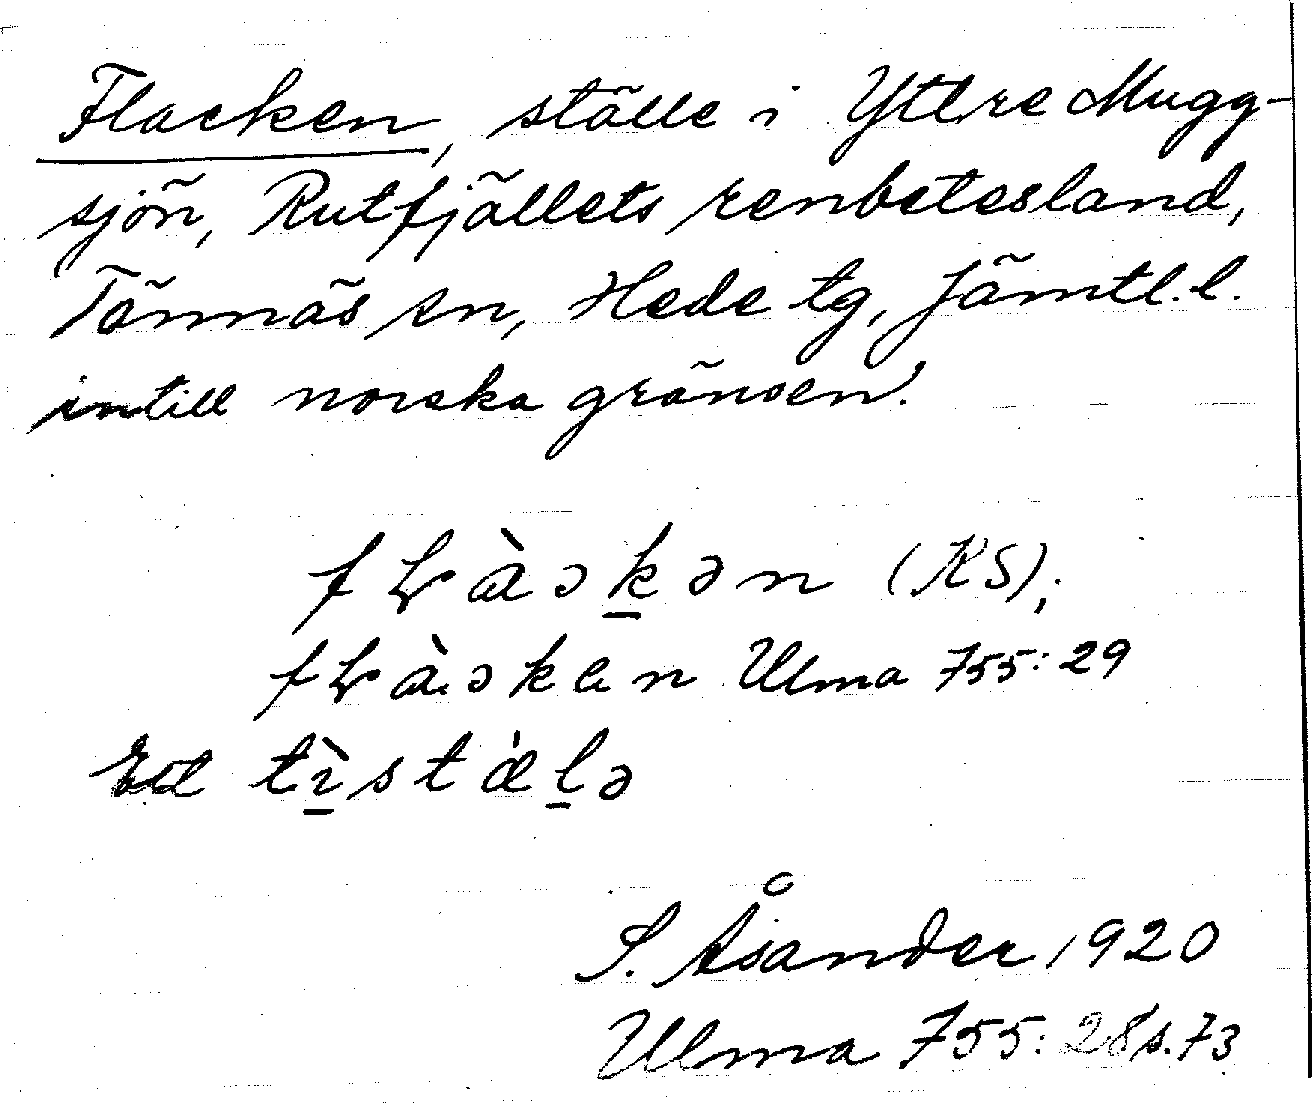 Flacken, ställe i Yttre Mugg-
sjön, Rutfjällets renbetesland,
Tännäs sn, Hede tg, Jämtl. l.
intill norska gränsen.
(KS);
Ulma 755:29
S. Åsander 1920
Ulma 755:28 s. 73